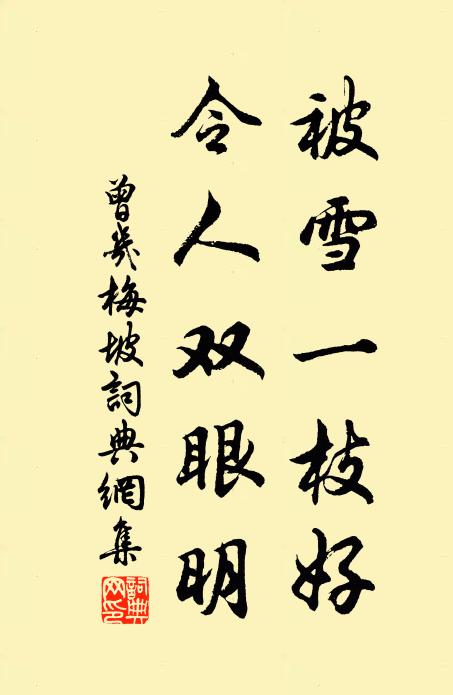 被雪一枝好
令人双眼明
曾幾梅坡詞典網集
詞典網印